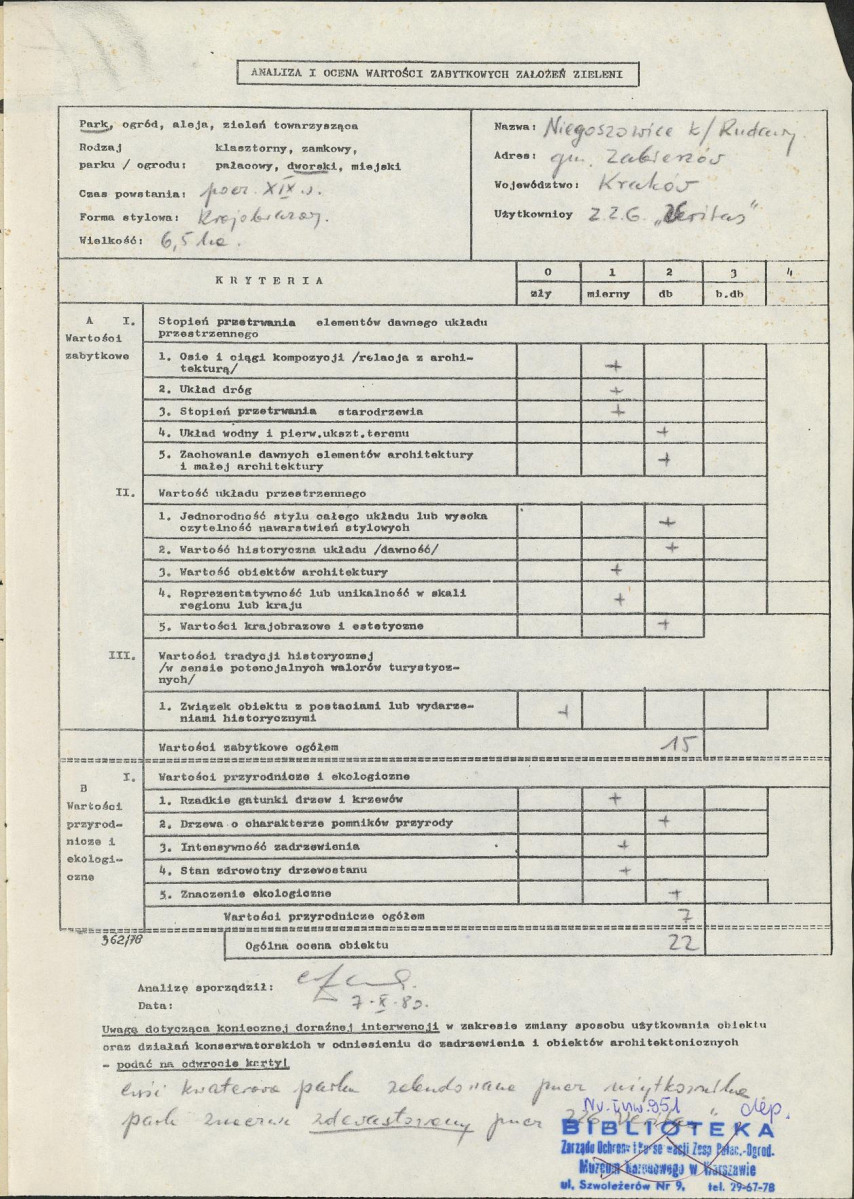 ANALIZA I OCENA WARTOŚCI ZABYTKOWYCH ZAŁOŻEŃ ZIELENI
Park, ogród, aleja, zieleń towarzysząca
Rodzaj klasztorny, zamkowy,
parku / ogrodu: pałacowy, dworski, miejski
Czas powstania: pocz. XIX w.
Forma stylowa: Krajobrazowy.
Wielkość: 6,5 ha.
Nazwa: Niegoszowice k/Rudawy
Adres: gm. Zabierzów
Województwo: Kraków
Użytkownicy Z.Z.G. "Veritas"
KRYTERIA
0 1 2 3 4
zły mierny db b.db
A I. Stopień przetrwania elementów dawnego układu
Wartości przestrzennego
zabytkowe 1. Osie i ciągi kompozycji /relacja z archi-
tekturą/ +
2. Układ dróg +
3. Stopień przetrwania starodrzewia +
4. Układ wodny i pierw.ukszt.terenu +
5. Zachowanie dawnych elementów architektury
i małej architektury +
II. Wartość układu przestrzennego
1. Jednorodność stylu całego układu lub wysoka
czytelność nawarstwień stylowych +
2. Wartość historyczna układu /dawność/ +
3. Wartość obiektów architektury +
4. Reprezentatywność lub unikalność w skali
regionu lub kraju +
5. Wartości krajobrazowe i estetyczne +
III. Wartości tradycji historycznej
/w sensie potencjalnych walorów turystycz-
nych/
1. Związek obiektu z postaciami lub wydarze-
niami historycznymi +
Wartości zabytkowe ogółem 15
B I. Wartości przyrodnicze i ekologiczne
Wartości przyrod- nicze i ekologi- czne
1. Rzadkie gatunki drzew i krzewów +
2. Drzewa o charakterze pomników przyrody +
3. Intensywność zadrzewienia +
4. Stan zdrowotny drzewostanu +
5. Znaczenie ekologiczne +
Wartości przyrodnicze ogółem 7
362/78
Ogólna ocena obiektu 22
Analizę sporządził:
Data: 7.X.80.
Uwagę dotycząca koniecznej doraźnej interwencji w zakresie zmiany sposobu użytkowania obiektu
oraz działań konserwatorskich w odniesieniu do zadrzewienia i obiektów architektonicznych
- podać na odwrocie karty!
część kwaterowa parku zabudowana przez użytkownika
park znacznie zdewastowany przez ZZG "Veritas"
Nr. inw. 951 dép.
BIBLIOTEKA
Zarządu Ochrony i Konserwacji Zesp. Pałac.-Ogrod.
Muzeum Narodowego w Warszawie
ul. Szwoleżerów Nr 9, tel. 29-67-78